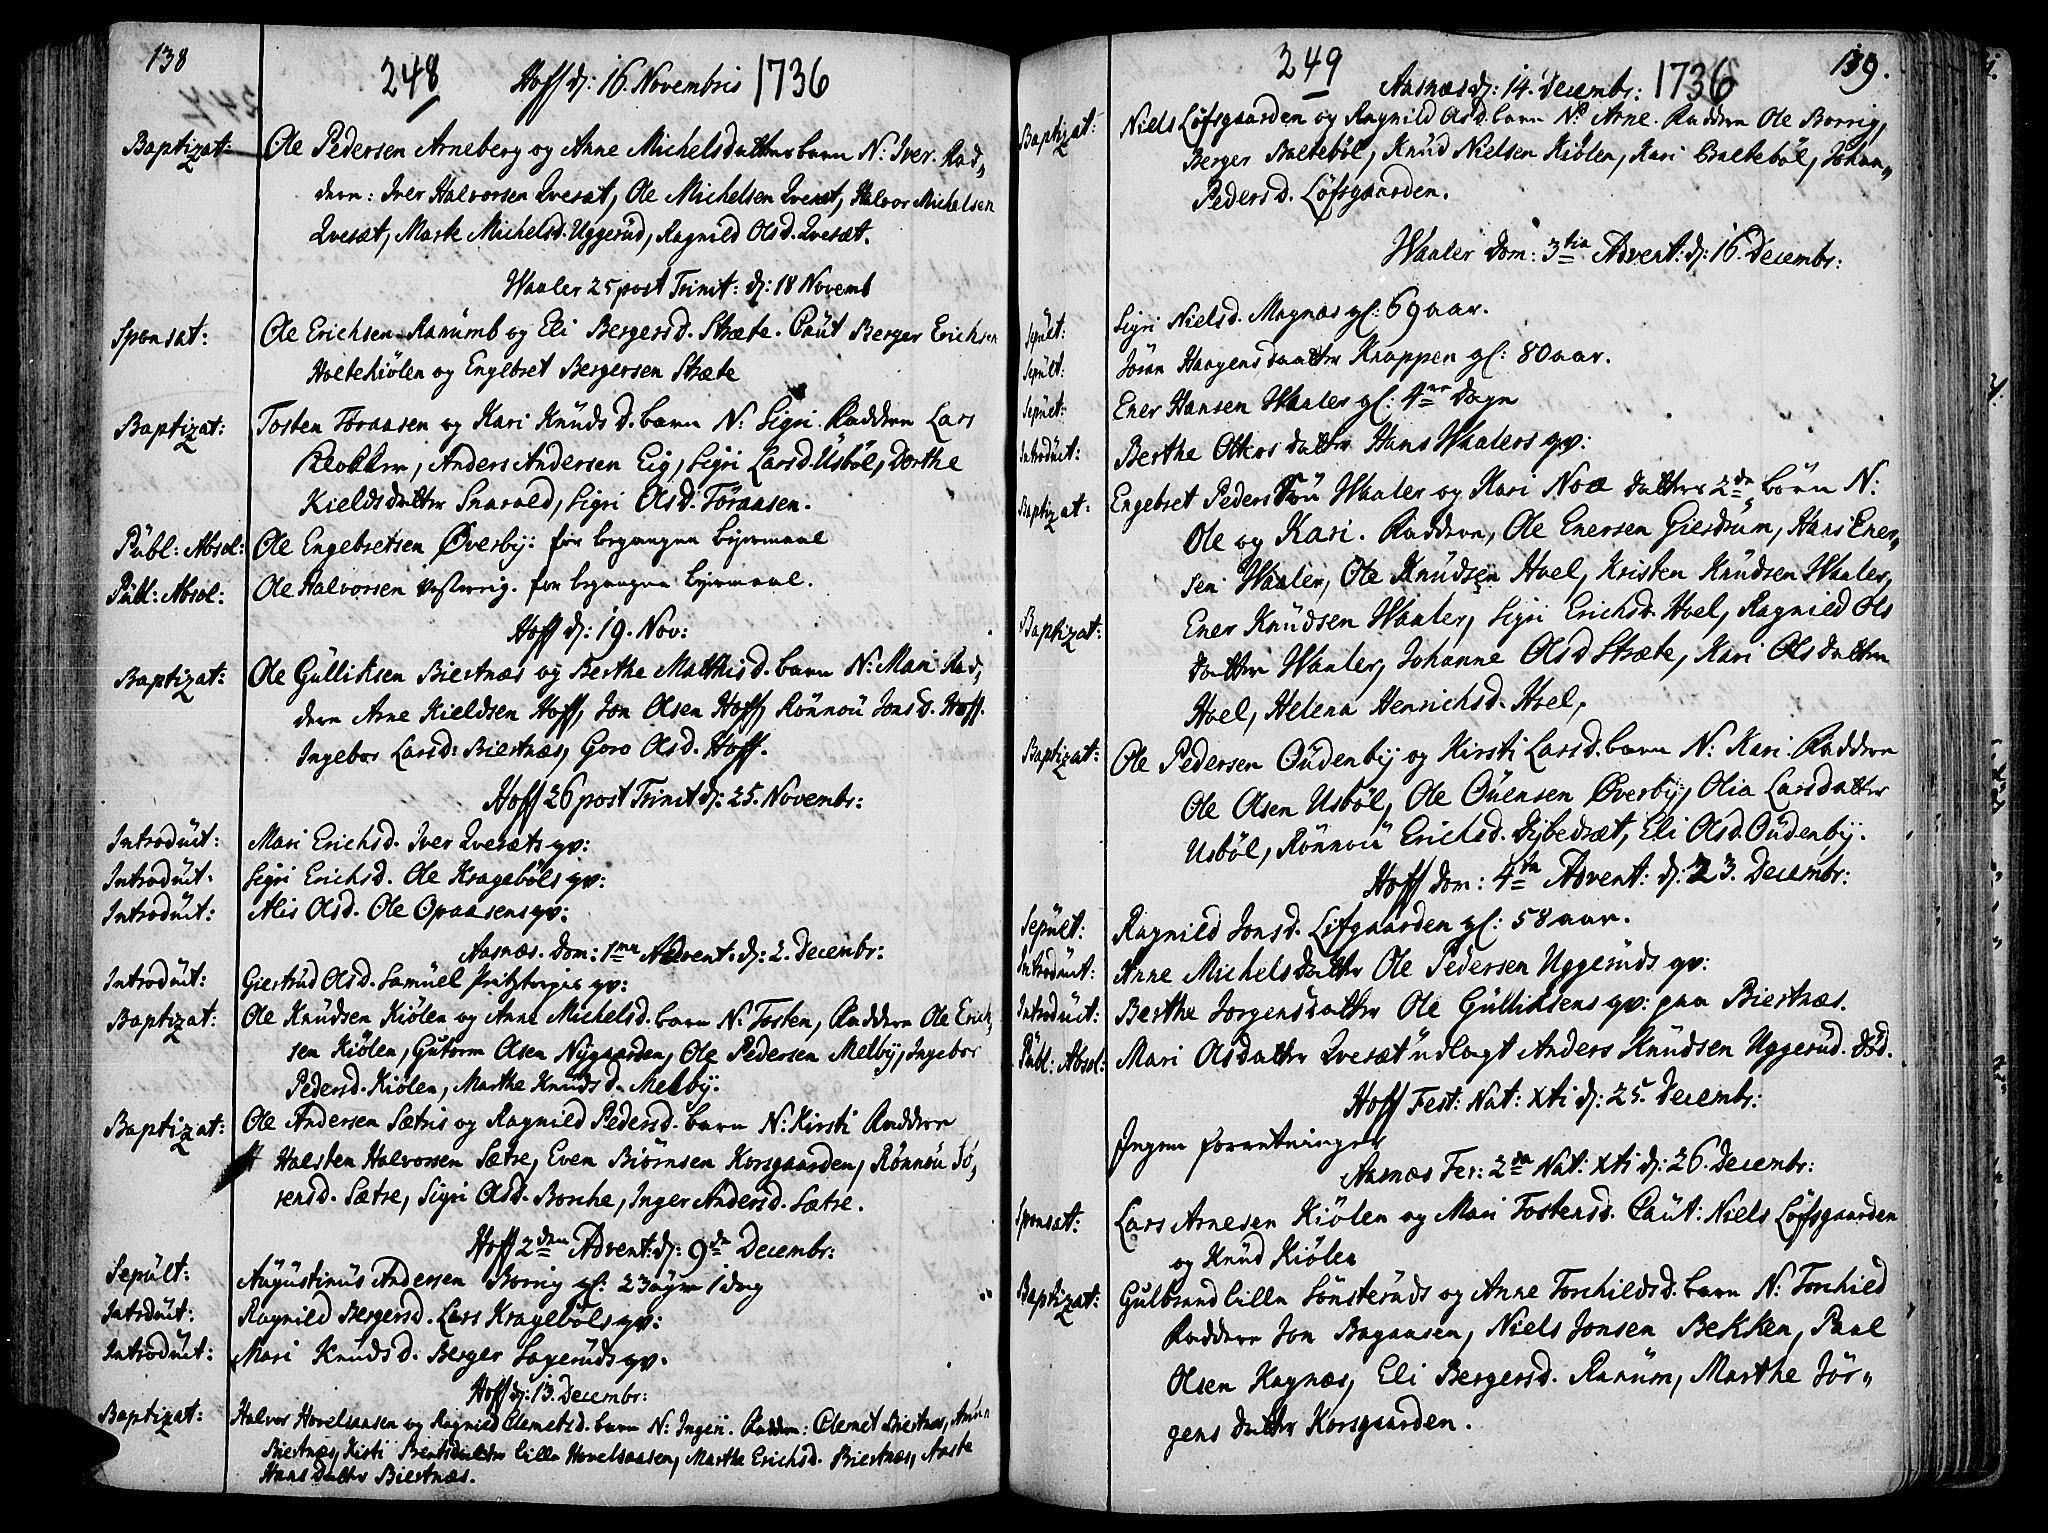 138
248 Hoff dj: 16. Novembris 1736
Baptizat: Ole Pedersen Arneberg og Anne Michelsdatters barn N: Iver. Fad„
dern: Iver Halvorsen Qvesæt, Ole Michelsen Qvesæt, Halvor Michelsen
Qvesæt, Marte Michelsd. Uggerud, Ragnild Olsd. Qvesæt.
Waaler 25 post Trinit: dj: 18 Novemb
Sponsat: Ole Erichsen Ranumb og Eli Bergersd. Stræte. Caut Berger Erichsen
Holtekiölen og Engebret Bergersen Stræte
Baptizat: Tosten Töraasen og Kari Knudsd. barn N: Sigri. Faddern Lars
Klokker, Anders Andersen Eig, Sigri Larsd. Usböl, Dorthe
Kieldsdatter Snarold, Sigri Olsd. Töraasen.
Publ: Absol: Ole Engebretsen Øverby: for begangen leyermaal
Publ: Absol: Ole Halvorsen for begangen leyermaal.
Hoff dj: 19. Nov:
Baptizat: Ole Gulliksen Biertnæs og Berthe Matthisd. barn N: Mari Fad„
dern Arne Kieldsen Hoff, Jon Olsen Hoff, Rönnou Jonsd. Hoff.
Ingebor Larsd: Biertnæs, Goro Olsd. Hoff.
Hoff 26 post Trinit dj: 25. Novembr:
Introduit: Mari Erichsd. Iver Qvesæts qv:
Introduit: Sigri Erichsd. Ole Krageböls qv:
Introduit: Alis Olsd. Ole Opaasens qv:
Aasnæs. Dom: 1ma Advent. dj: 2. Decembr:
Introduit: Giertrud Olsd. Samuel qv:
Baptizat: Ole Knudsen Kiölen og Anne Michelsd. barn N: Tosten, Faddern Ole Erich„
sen Kiölen, Gutorm Olsen Nygaarden, Ole Pedersen Melby, Ingebor
Pedersd. Kiölen, Marthe Knudsd. Melby.
Baptizat: Ole Andersen Sætris og Ragnild Pedersd. barn N: Kirsti Faddern
Halsten Halvorsen Sætre, Even Biörnsen Korsgaarden, Rönnou Sö„
rensd. Sætre, Sigri Olsd. Borche, Inger Andersd. Sætre.
Hoff 2den Advent: dj: 9de Decembr:
Sepult: Augustinus Andersen Borrig gl: 23 uger 1 dag
Introduit: Ragnild Bergersd. Lars Krageböls qv:
Introduit: Mari Knudsd. Berger Sageruds qv.
Hoff dj: 13. Decembr:
Baptizat: Halvor Hovelsaasen og Ragnild Clemetsd. barn N: Ingeri. Faddern: Clemet Biertnæs,
Biertnæs, Kisti Berntsdatter lille Hovelsaasen, Marthe Erichsd. Biertnæs, Aaste
Hansdatter Biertnæs.
249 139.
Aasnæs dj: 14. Decembr: 1736
Baptizat: Niels Löfsgaarden og Ragnild Olsd. barn N: Arne. Faddern Ole Borrig,
Berger Balteböl, Knud Nielsen Kiölen, Kari Balteböl, Johan„
Pedersd. Löfsgaarden.
Waaler Dom: 3tia Advent: dj: 16. Decembr:
Sepult: Sigri Nielsd. Magnæs gl: 69 aar.
Sepult: Jöran Haagensdaatter Knappen gl: 80 aar.
Sepult: Ener Hansen Waaler gl: 4re Dage
Introduit: Berthe Ottersdatter Hans Waalers qv:
Baptizat: Engebret Peders Waaler og Kari Noædatters 2de börn N:
Ole og Kari. Faddern, Ole Enersen Gierdrum, Hans Ener„
sen Waaler, Ole Knudsen Hoel, Kristen Knudsen Waaler,
Baptizat: Ener Knudsen Waaler, Sigri Erichsd. Hoel, Ragnild Ols
datter Waaler, Johanne Olsd Stræte, Kari Olsdatter
Hoel, Helena Henrichsd. Hoel,
Baptizat: Ole Pedersen Oudenby og Kirsti Larsd. barn N: Kari Faddern
Ole Olsen Usböl, Ole Ouensen Øverby, Olia Larsdatter
Usböl, Rönnou Erichsd. Dybedræt, Eli Olsd. Oudenby.
Hoff dom: 4ta Advent: dj: 23. Decembr:
Sepult: Ragnild Jonsd. Lifgaarden gl: 58 aar.
Introduit: Anne Michelsdatter Ole Pedersen Uggeruds qv:
Introduit: Berthe Jorgensdatter Ole Gulliksens qv: paa Biertnæs.
Publ: Absol: Mari Olsdatter Qvesæt udlagt Anders Knudsen Uggerud. död.
Hoff Fest: Nat: Xti dj: 25. Decembr:
Ingen forretninger
Aasnæs Fer: 2da Nat: Xti dj: 26. Decembr:
Sponsat: Lars Arnesen Kiölen og Mari Tostensd. Caut: Niels Löfsgaarden
og Knud Kiölen
Baptizat: Gulbrand lille Sönsteruds og Anne Torchildsd. barn N: Torchild
Faddern Jon Bagaasen, Niels Jonsen Bekken, Paal
Olsen Hagnæs, Eli Bergersd. Ranum, Marthe Jör„
gensdatter Korsgaarden.